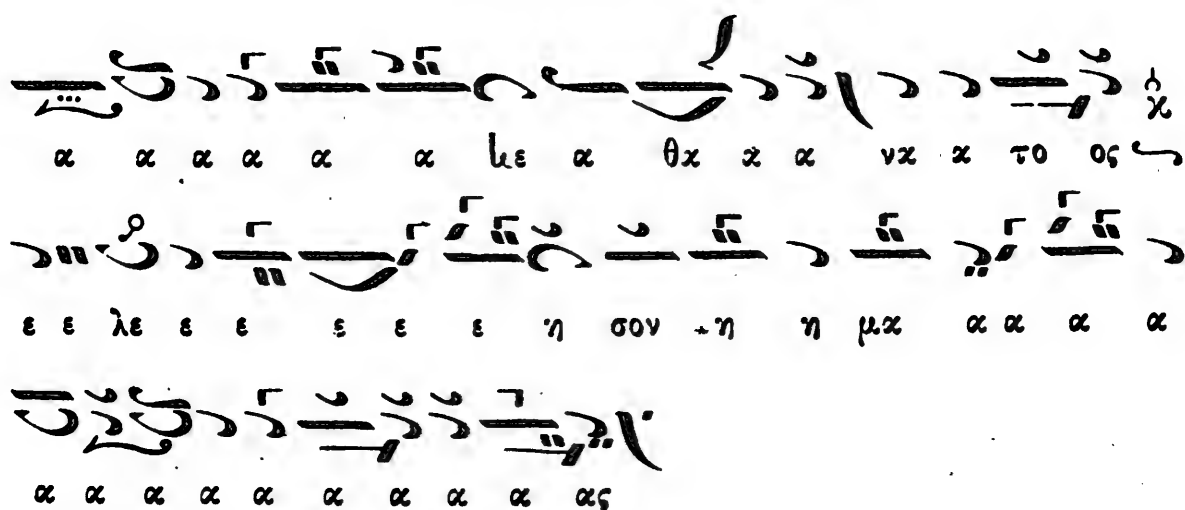 α α α α α α α θα α α να α το ος
ε ε λε ε ε ε ε ε η σον η η μα α α α α
α α α α α α α α α ας